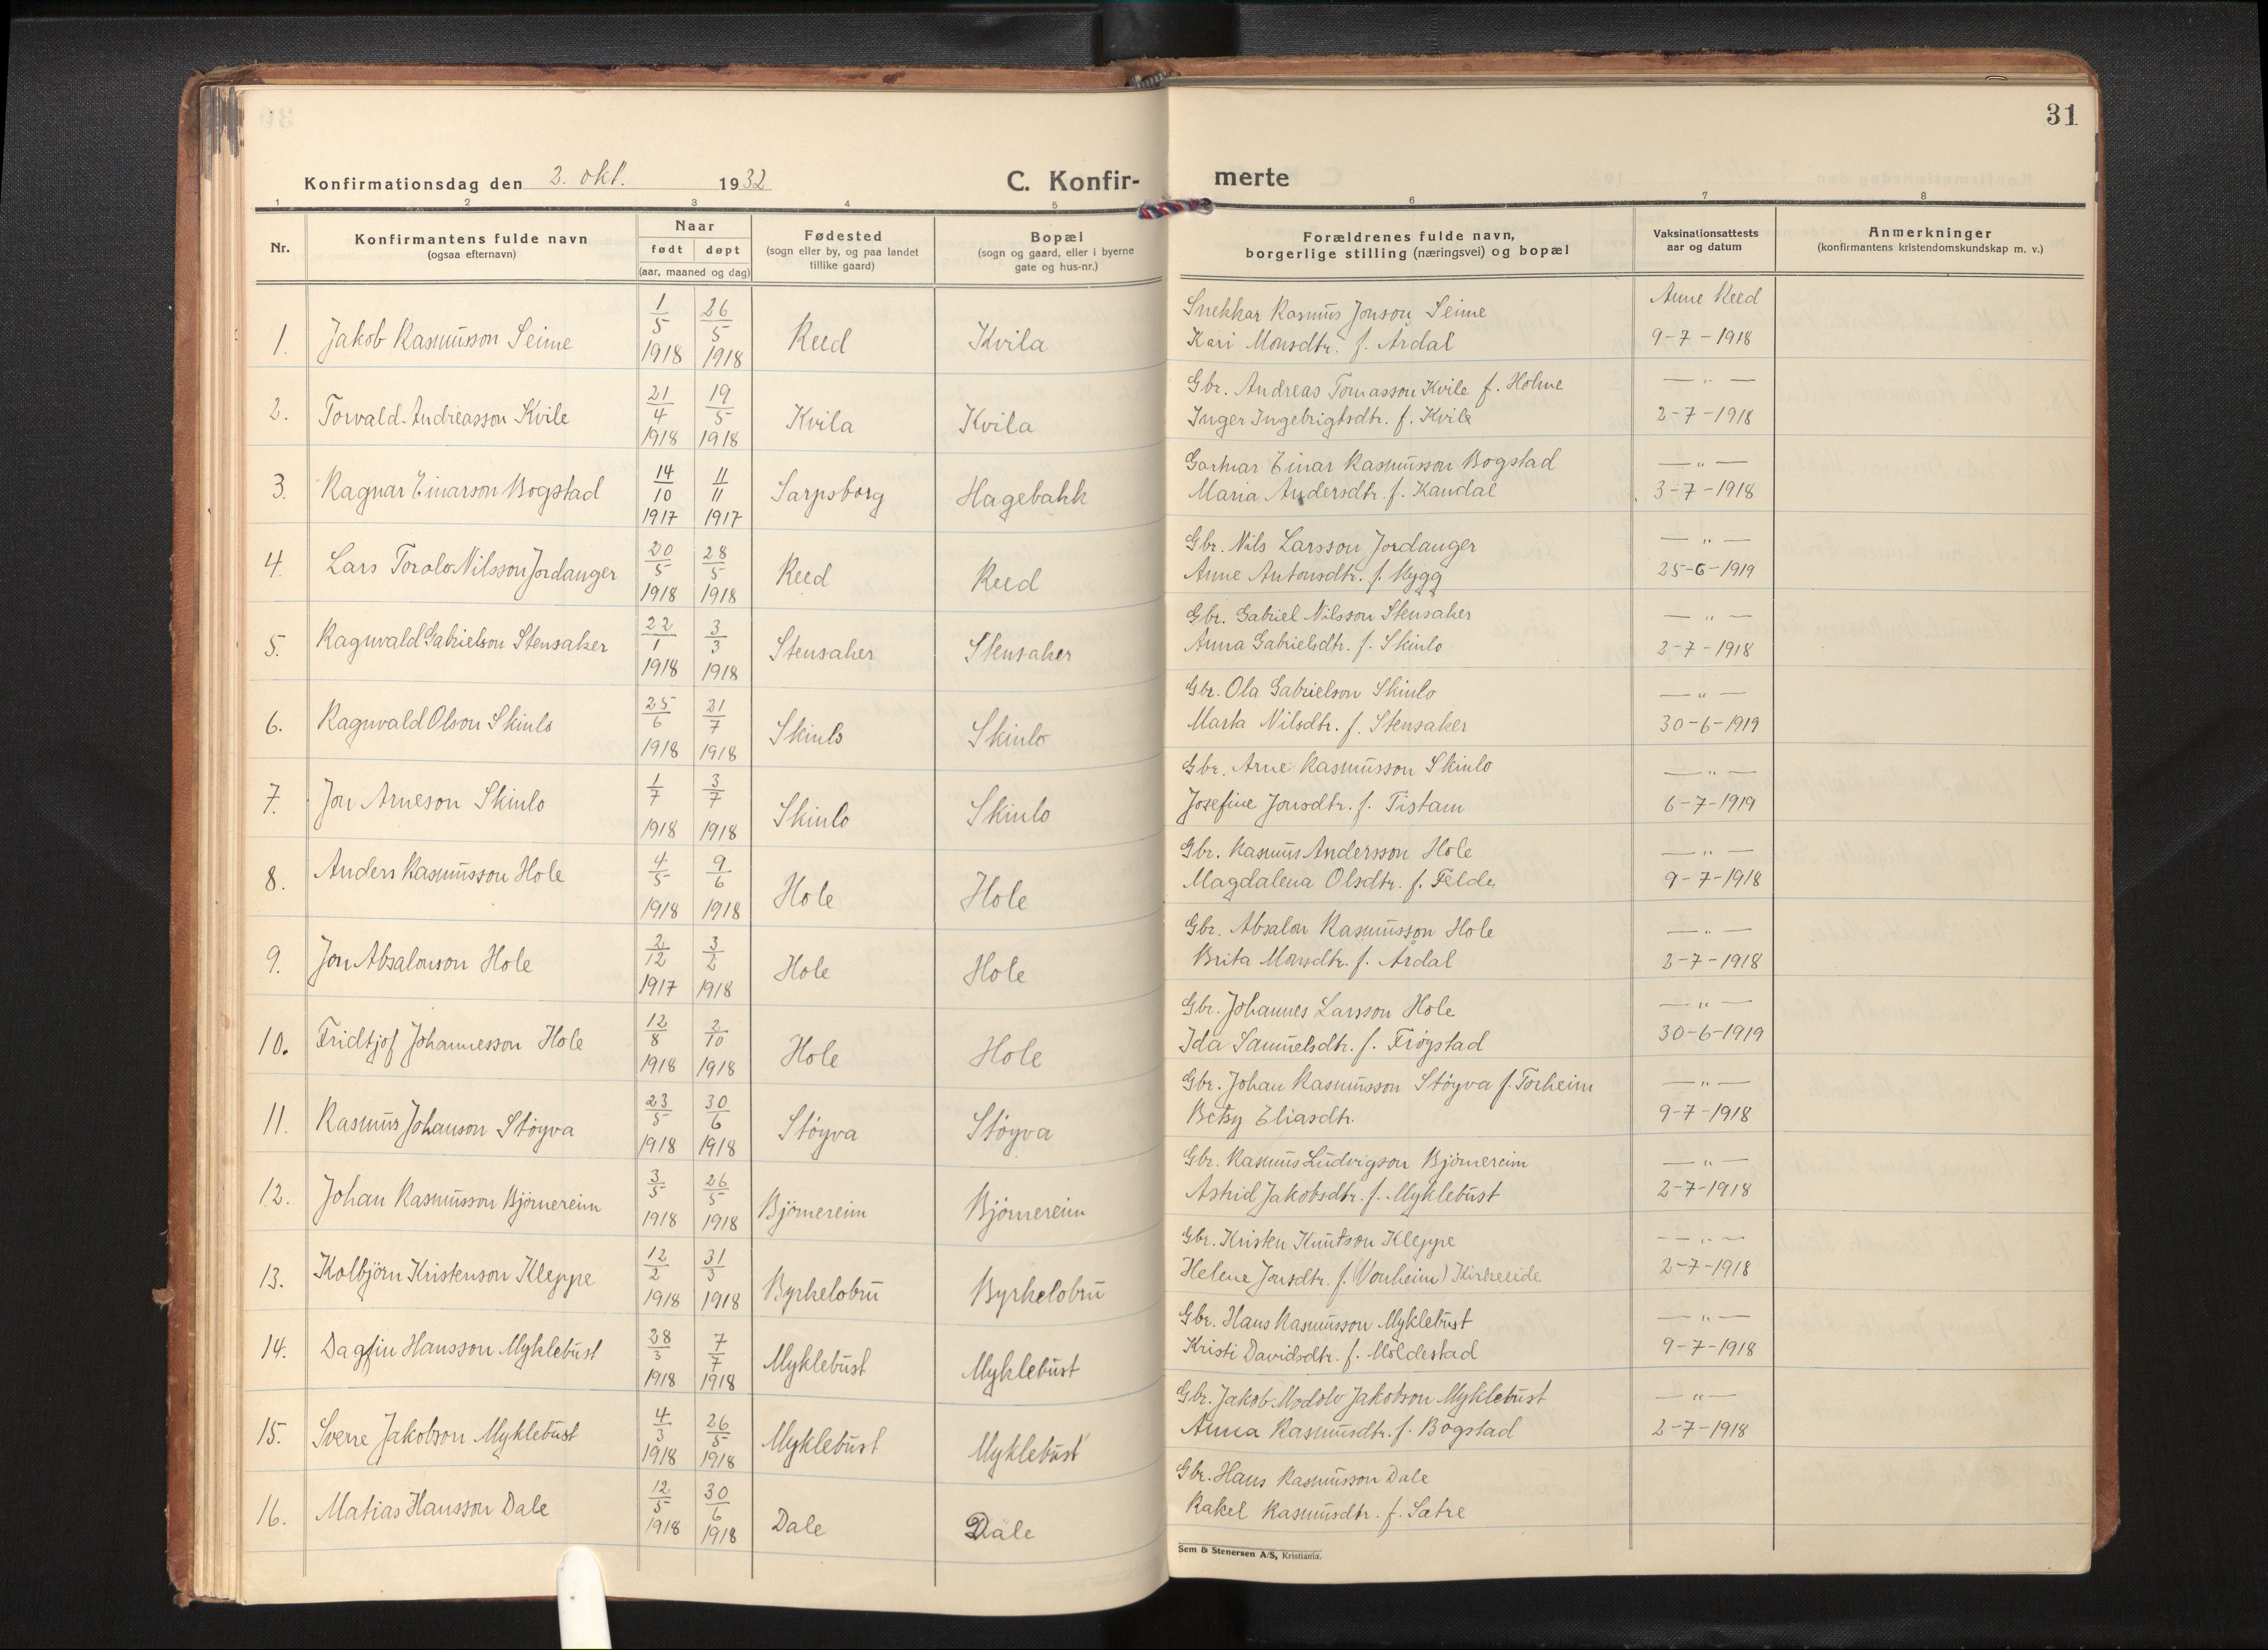 31
Konfirmationsdag den 2. okt. 1932 C. Konfir- merte
1 2 3 4 5 6 7 8
Nr.
Konfirmantens fulde navn
(ogsaa efternavn)
Naar
født døpt
(aar, maaned og dag)
Fødested
(sogn eller by, og paa landet
tillike gaard)
Bopæl
(sogn og gaard, eller i byerne
gate og hus-nr.)
Forældrenes fulde navn,
borgerlige stilling (næringsvei) og bopæl
Vaksinationsattests
aar og datum
Anmerkninger
(konfirmantens kristendomskundskap m. v.)
1. Jakob Rasmusson Seime 1/5 1918 26/5 1918 Reed Kvila
Snekkar Rasmus Jonson Seime Anne Reed
Kari Monsdtr. f. Årdal 9-7-1918
2. Torvald Andreasson Kvile 21/4 1918 19/5 1918 Kvila Kvila
Gbr. Andreas Tomasson Kvile f. Holme — " —
Inger Ingebrigtsdtr. f. Kvile 2-7-1918
3. Ragnar Einarson Bogstad 14/10 1917 11/11 1917 Sarpsborg Hagebakk
Gartnar Einar Rasmusson Bogstad — " —
Maria Andersdtr. f. Kandal 3-7-1918
4. Lars Torolv Nilsson Jordanger 20/5 1918 28/5 1918 Reed Reed
Gbr. Nils Larsson Jordanger — " —
Anne Antonsdtr. f. Rygg 25-6-1919
5. Ragnvald Gabrielson Stensaker 22/1 1918 3/3 1918 Stensaker Stensaker
Gbr. Gabriel Nilsson Stensaker — " —
Anna Gabrielsdtr. f. Skinlo 2-7-1918
6. Ragnvald Olson Skinlo 25/6 1918 21/7 1918 Skinlo Skinlo
Gbr. Ola Gabrielson Skinlo — " —
Marta Nilsdtr. f. Stensaker 30-6-1919
7. Jon Arneson Skinlo 1/7 1918 3/7 1918 Skinlo Skinlo
Gbr. Arne Rasmusson Skinlo — " —
Josefine Jonsdtr. f. Tistam 6-7-1919
8. Anders Rasmusson Hole 4/5 1918 9/6 1918 Hole Hole
Gbr. Rasmus Andersson Hole — " —
Magdalena Olsdtr. f. Felde 9-7-1918
9. Jon Absalonson Hole 2/12 1917 3/2 1918 Hole Hole
Gbr. Absalon Rasmusson Hole — " —
Brita Monsdtr. f. Årdal 2-7-1918
10. Fridtjof Johannesson Hole 12/8 1918 2/10 1918 Hole Hole
Gbr. Johannes Larsson Hole — " —
Ida Samuelsdtr. f. Frøystad 30-6-1919
11. Rasmus Johanson Støyva 23/5 1918 30/6 1918 Støyva Støyva
Gbr. Johan Rasmusson Støyva f. Torheim — " —
Betsy Eliasdtr. 9-7-1918
12. Johan Rasmusson Björnereim 3/5 1918 26/5 1918 Björnereim Björnereim
Gbr. Rasmus Ludvigson Björnereim — " —
Astrid Jakobsdtr. f. Myklebust 2-7-1918
13. Kolbjörn Kristenson Kleppe 12/2 1918 31/3 1918 Byrkelobru Byrkelobru
Gbr. Kristen Knutson Kleppe — " —
Helene Jonsdtr. f. (Vonheim) Kirkeeide 2-7-1918
14. Dagfin Hansson Myklebust 28/3 1918 7/7 1918 Myklebust Myklebust
Gbr. Hans Rasmusson Myklebust — " —
Kristi Davidsdtr. f. Moldestad 9-7-1918
15. Sverre Jakobson Myklebust 4/3 1918 26/5 1918 Myklebust Myklebust
Gbr. Jakob Modolv Jakobson Myklebust — " —
Anna Rasmusdtr. f. Bogstad 2-7-1918
16. Matias Hansson Dale 12/5 1918 30/6 1918 Dale Dale
Gbr. Hans Rasmusson Dale
Rakel Rasmusdtr. f. Sætre
Sem & Stenersen A/S, Kristiania.